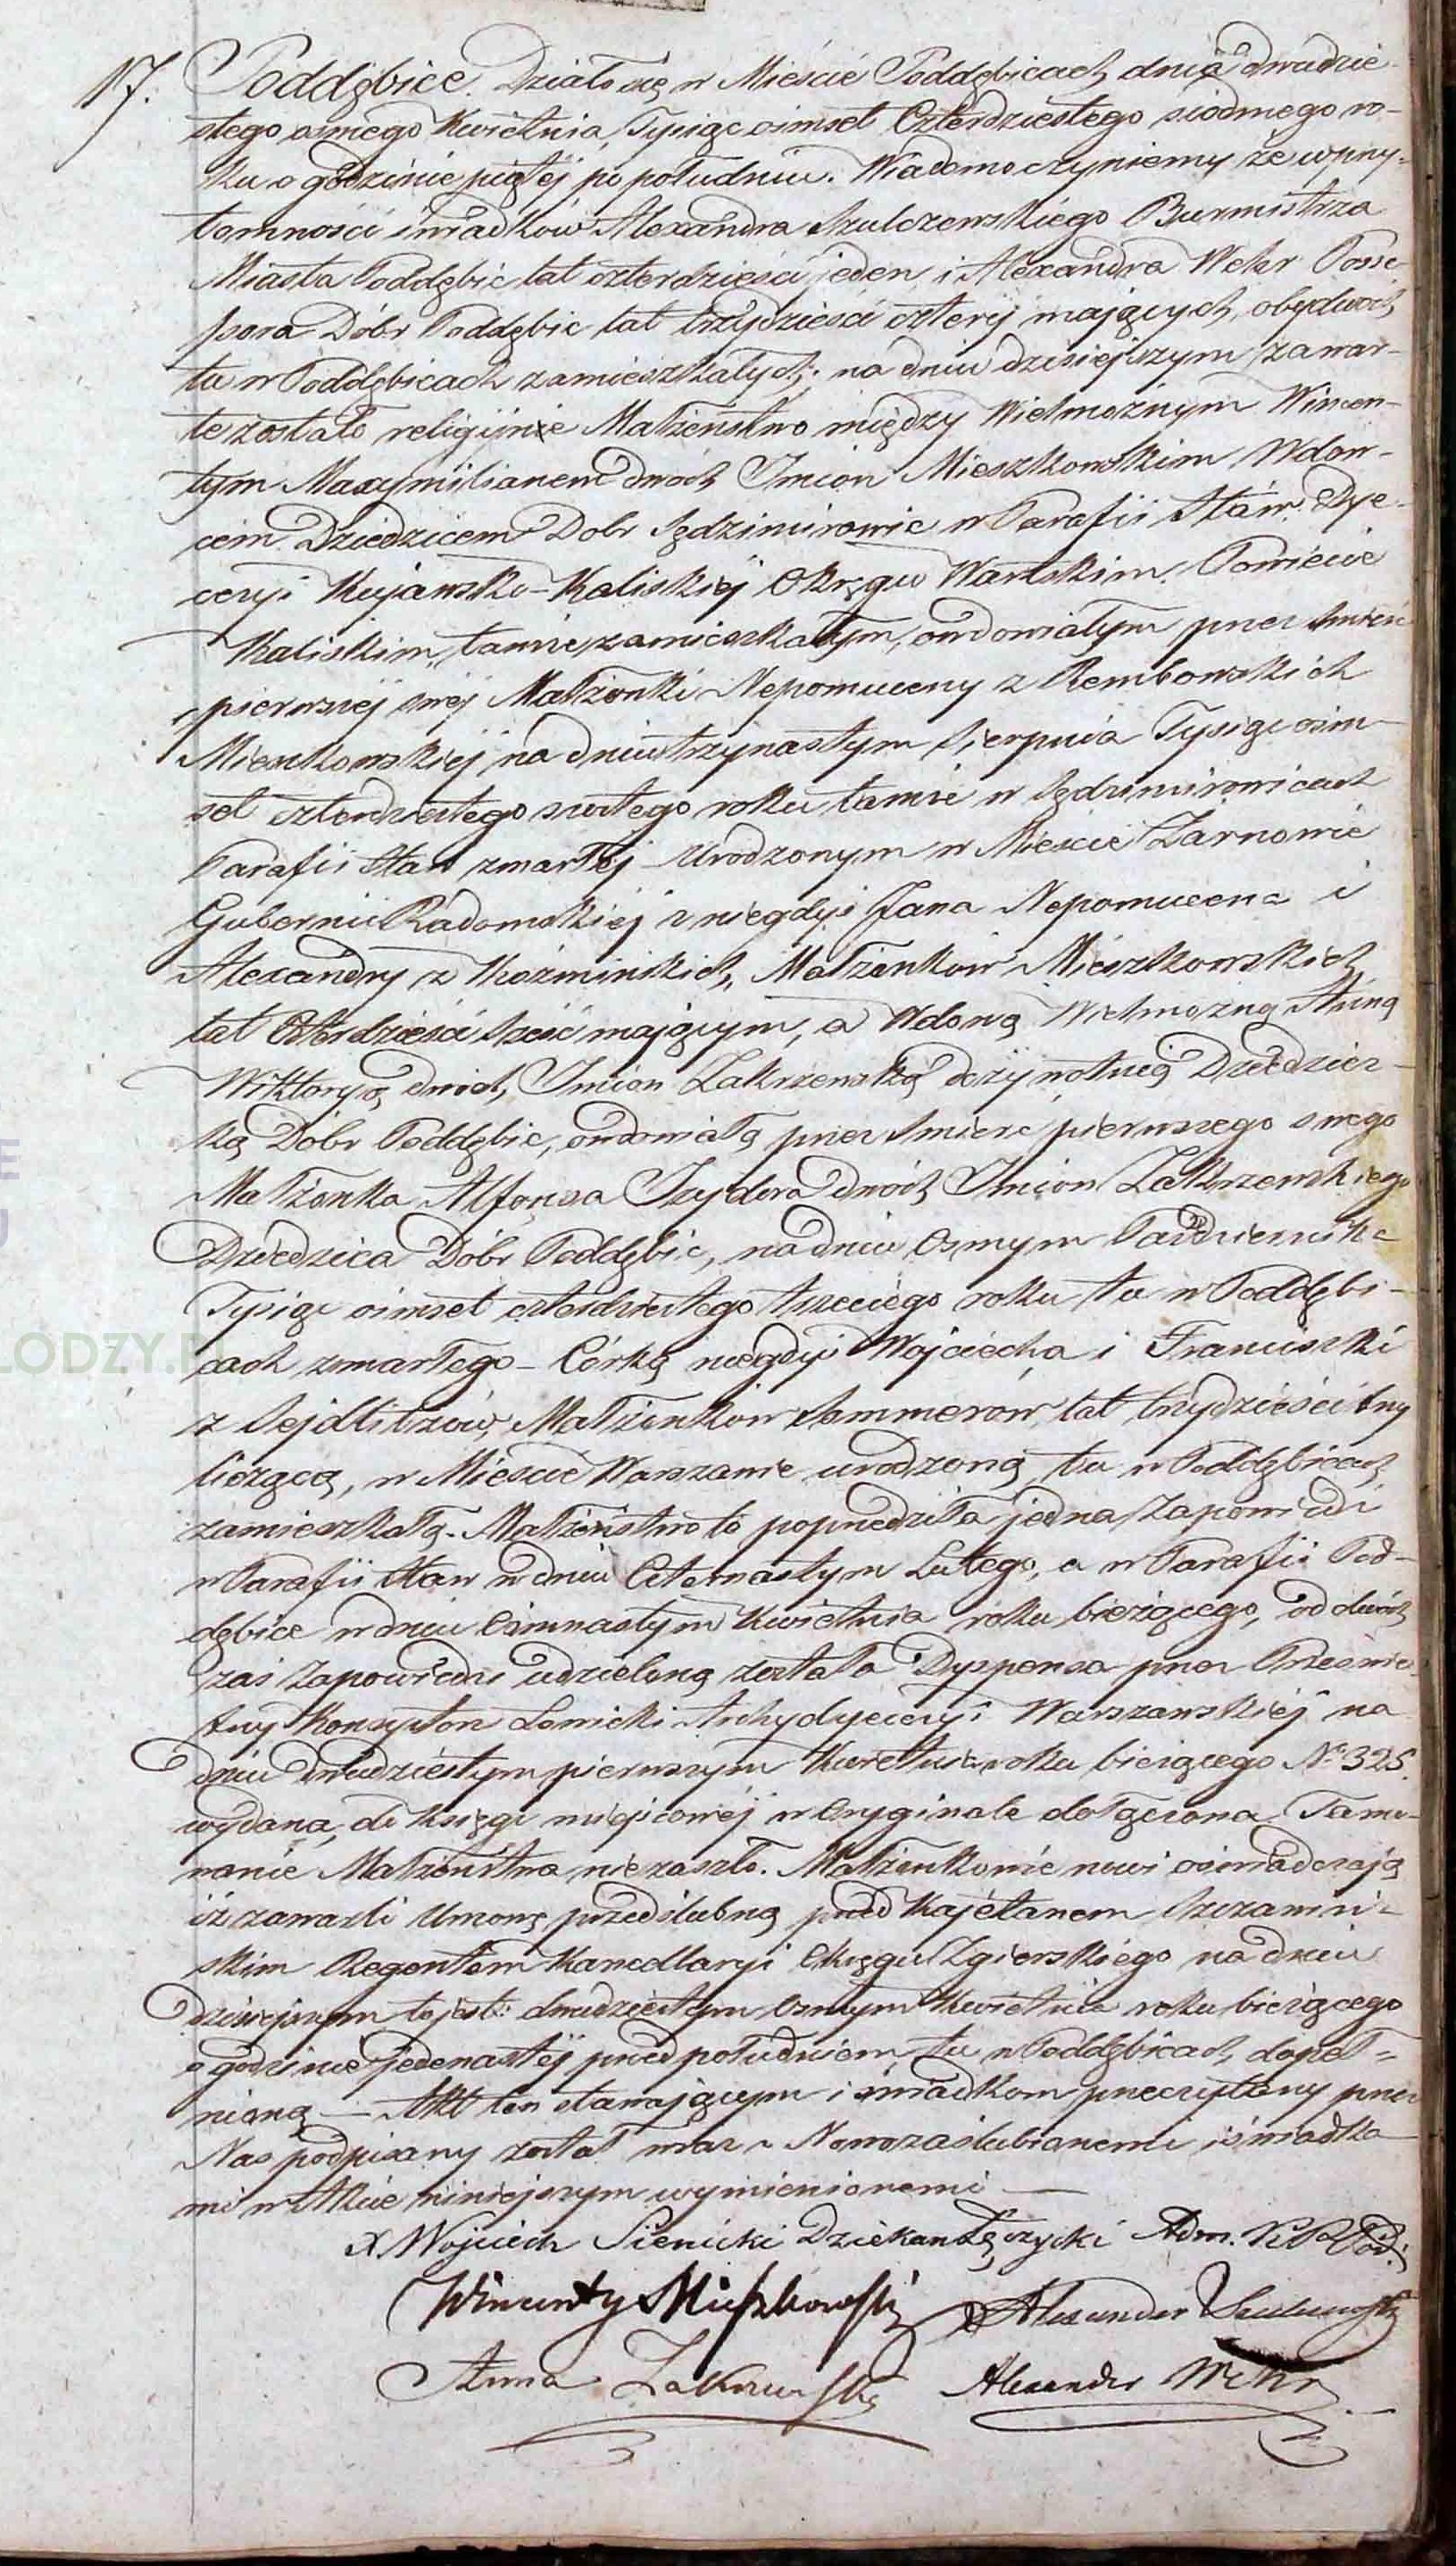 17. Poddębice. Działo się w Mieście Poddębicach dnia dwudzie-
stego ósmego Kwietnia, Tysiąc ośmset Czterdziestego siodmego ro-
ku o godzinie piątéj po południu. Wiadomo czyniemy że w przy-
tomności świadków Alexandra Szulczewskiego Burmistrza
Miasta Poddębic lat czterdzieści jeden i Alexandra Wehr Posse-
ssora Dóbr Poddębic lat trzydzieści cztery mających, obydwóch
tu w Poddębicach zamieszkałych; na dniu dzisiejszym zawar-
te zostało religijnie Małżeństwo między Wielmożnym Wincen-
tym Maxymilianem dwóch Imion Mieszkowskim Wdow-
cem Dziedzicem Dobr Sędzimirowic w Parafii Staw Dye-
cezyi Kujawsko-Kaliskiéj Okręgu Wartskim Powiecie
Kaliskim, tamże zamieszkałym, owdowiałym przez śmierć
pierwszéj swéj Małżonki Nepomuceny z Rembowskich
Mieszkowskiéj na dniu trzynastym Sierpnia Tysiąc ośm-
set czterdziestego szóstego roku tamże w Sędzimirowicach
Parafii Staw zmarłéj Urodzonym w Mieście Żarnowie
Gubernii Radomskiéj z niegdyś Jana Nepomucena i
Alexandry z Koźmińskich, Małżonków Mieszkowskich
lat Czterdzieści sześć mającym, a Wdową Wielmożną Anną
Wiktoryą dwóch Imion Zakrzewską dożywotnią Dziedzicz-
ką Dóbr Poddębic, owdowiałą przez śmierć pierwszego swego
Małżonka Alfonsa Izydora dwóch Imion Zakrzewskiego
Dziedzica Dóbr Poddębic, na dniu Osmym Października
Tysiąc ośmset czterdziestego trzeciego roku tu w Poddębi-
cach zmarłego – Córką niegdyś Wojciecha i Franciszki
z Sejdlitzów, Małżonków Sommerów lat trzydzieści trzy
liczącą, w Mieście Warszawie urodzoną tu w Poddębicach
zamieszkałą. Małżeństwo to poprzedziła jedna Zapowiedź
w Parafii Staw w dniu Czternastym Lutego, a w Parafii Pod-
dębice w dniu Osmnastym Kwietnia roku bieżącego, od dwóch
zaś Zapowiedzi udzieloną została Dyspensa przez Prześwie-
tny Konsystorz Łowicki Archydyecezyi Warszawskiéj na
dniu dwudziestym pierwszym Kwietnia roku bieżącego No 325.
wydana, do Księgi miejscowéj w Oryginale dołączona Tamo-
wanie Małżeństwa nie zaszło. Małżonkowie nowi oświadczają
iż zawarli Umowę przedślubną przed Kajetanem Szczawiń-
skim Regentem Kancellaryi Okręgu Zgierskiego na dniu
dzisiejszym to jest: dwudziestym Osmym Kwietnia roku bieżącego
o godzinie jedenastéj przed południem tu w Poddębicach, dopeł-
nioną – Akt ten stawającym i świadkom przeczytany przez
Nas podpisany został wraz z Nowozaślubionemi i świadka-
mi w Akcie niniejszym wymienionemi —
X. Wojciech Sienicki Dziekan Łęczycki Adm. K. P. Pod.
Wincenty Mieszkowski Alexander Szulczewski
Anna Zakrzewska Alexander Wehr